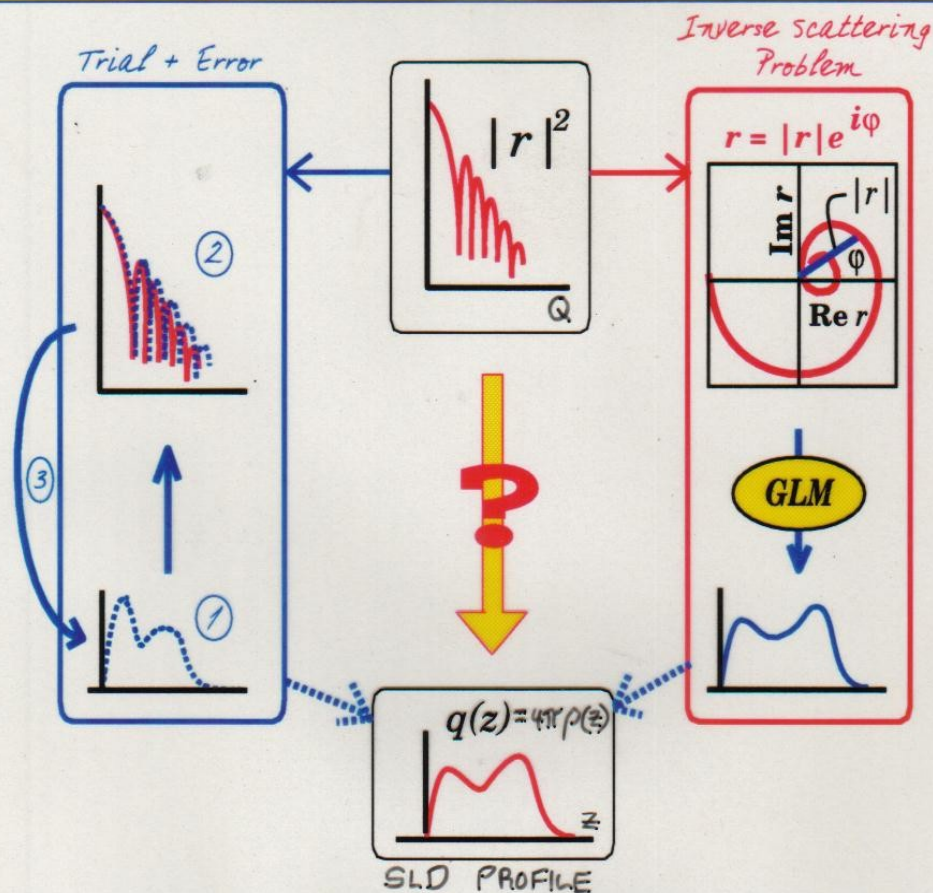 Trial + Error
Inverse Scattering
Problem
|r|²
Q
r = |r|e^{iφ}
Im r
|r|
φ
Re r
②
③
?
GLM
①
q(z) = 4πρ(z)
z
SLD PROFILE